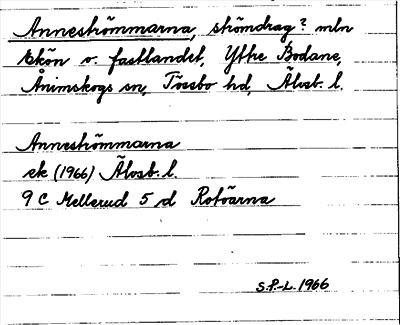 Anneströmmarna, strömdrag? mln
Ekön o. fastlandet, Yttre Bodane,
Ånimskogs sn, Tössbo hd, Älvsb. l.
Anneströmmarna
ek (1966) Älvsb. l.
9 C Mellerud 5 d Rotöarna
S.P.-L. 1966